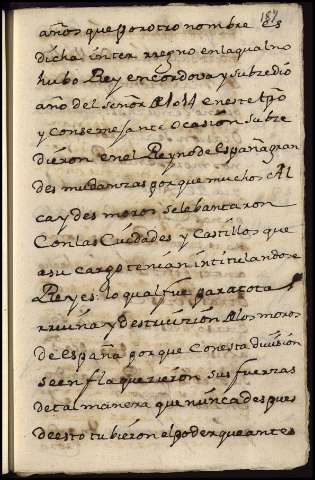 187
años que por otro nombre es
dicha inter rregno en la qual no
hubo Rey en cordova y subzedio
año del señor D 1014 en este tpõ
y Con semejante ocasión subze
dieron en el Reyno de España gran
des mudanzas porque muchos Al
caydes moros se lebantaron
Con las Ciudades y Castillos que
a su cargo tenian intitulandose
Reyes. lo qual fue para tota
rruina y destruizion D los moros
de España porque Con esta division
se enflaquezieron sus fuerzas
de tal manera que nunca despues
de esto tubieron el poder que antes